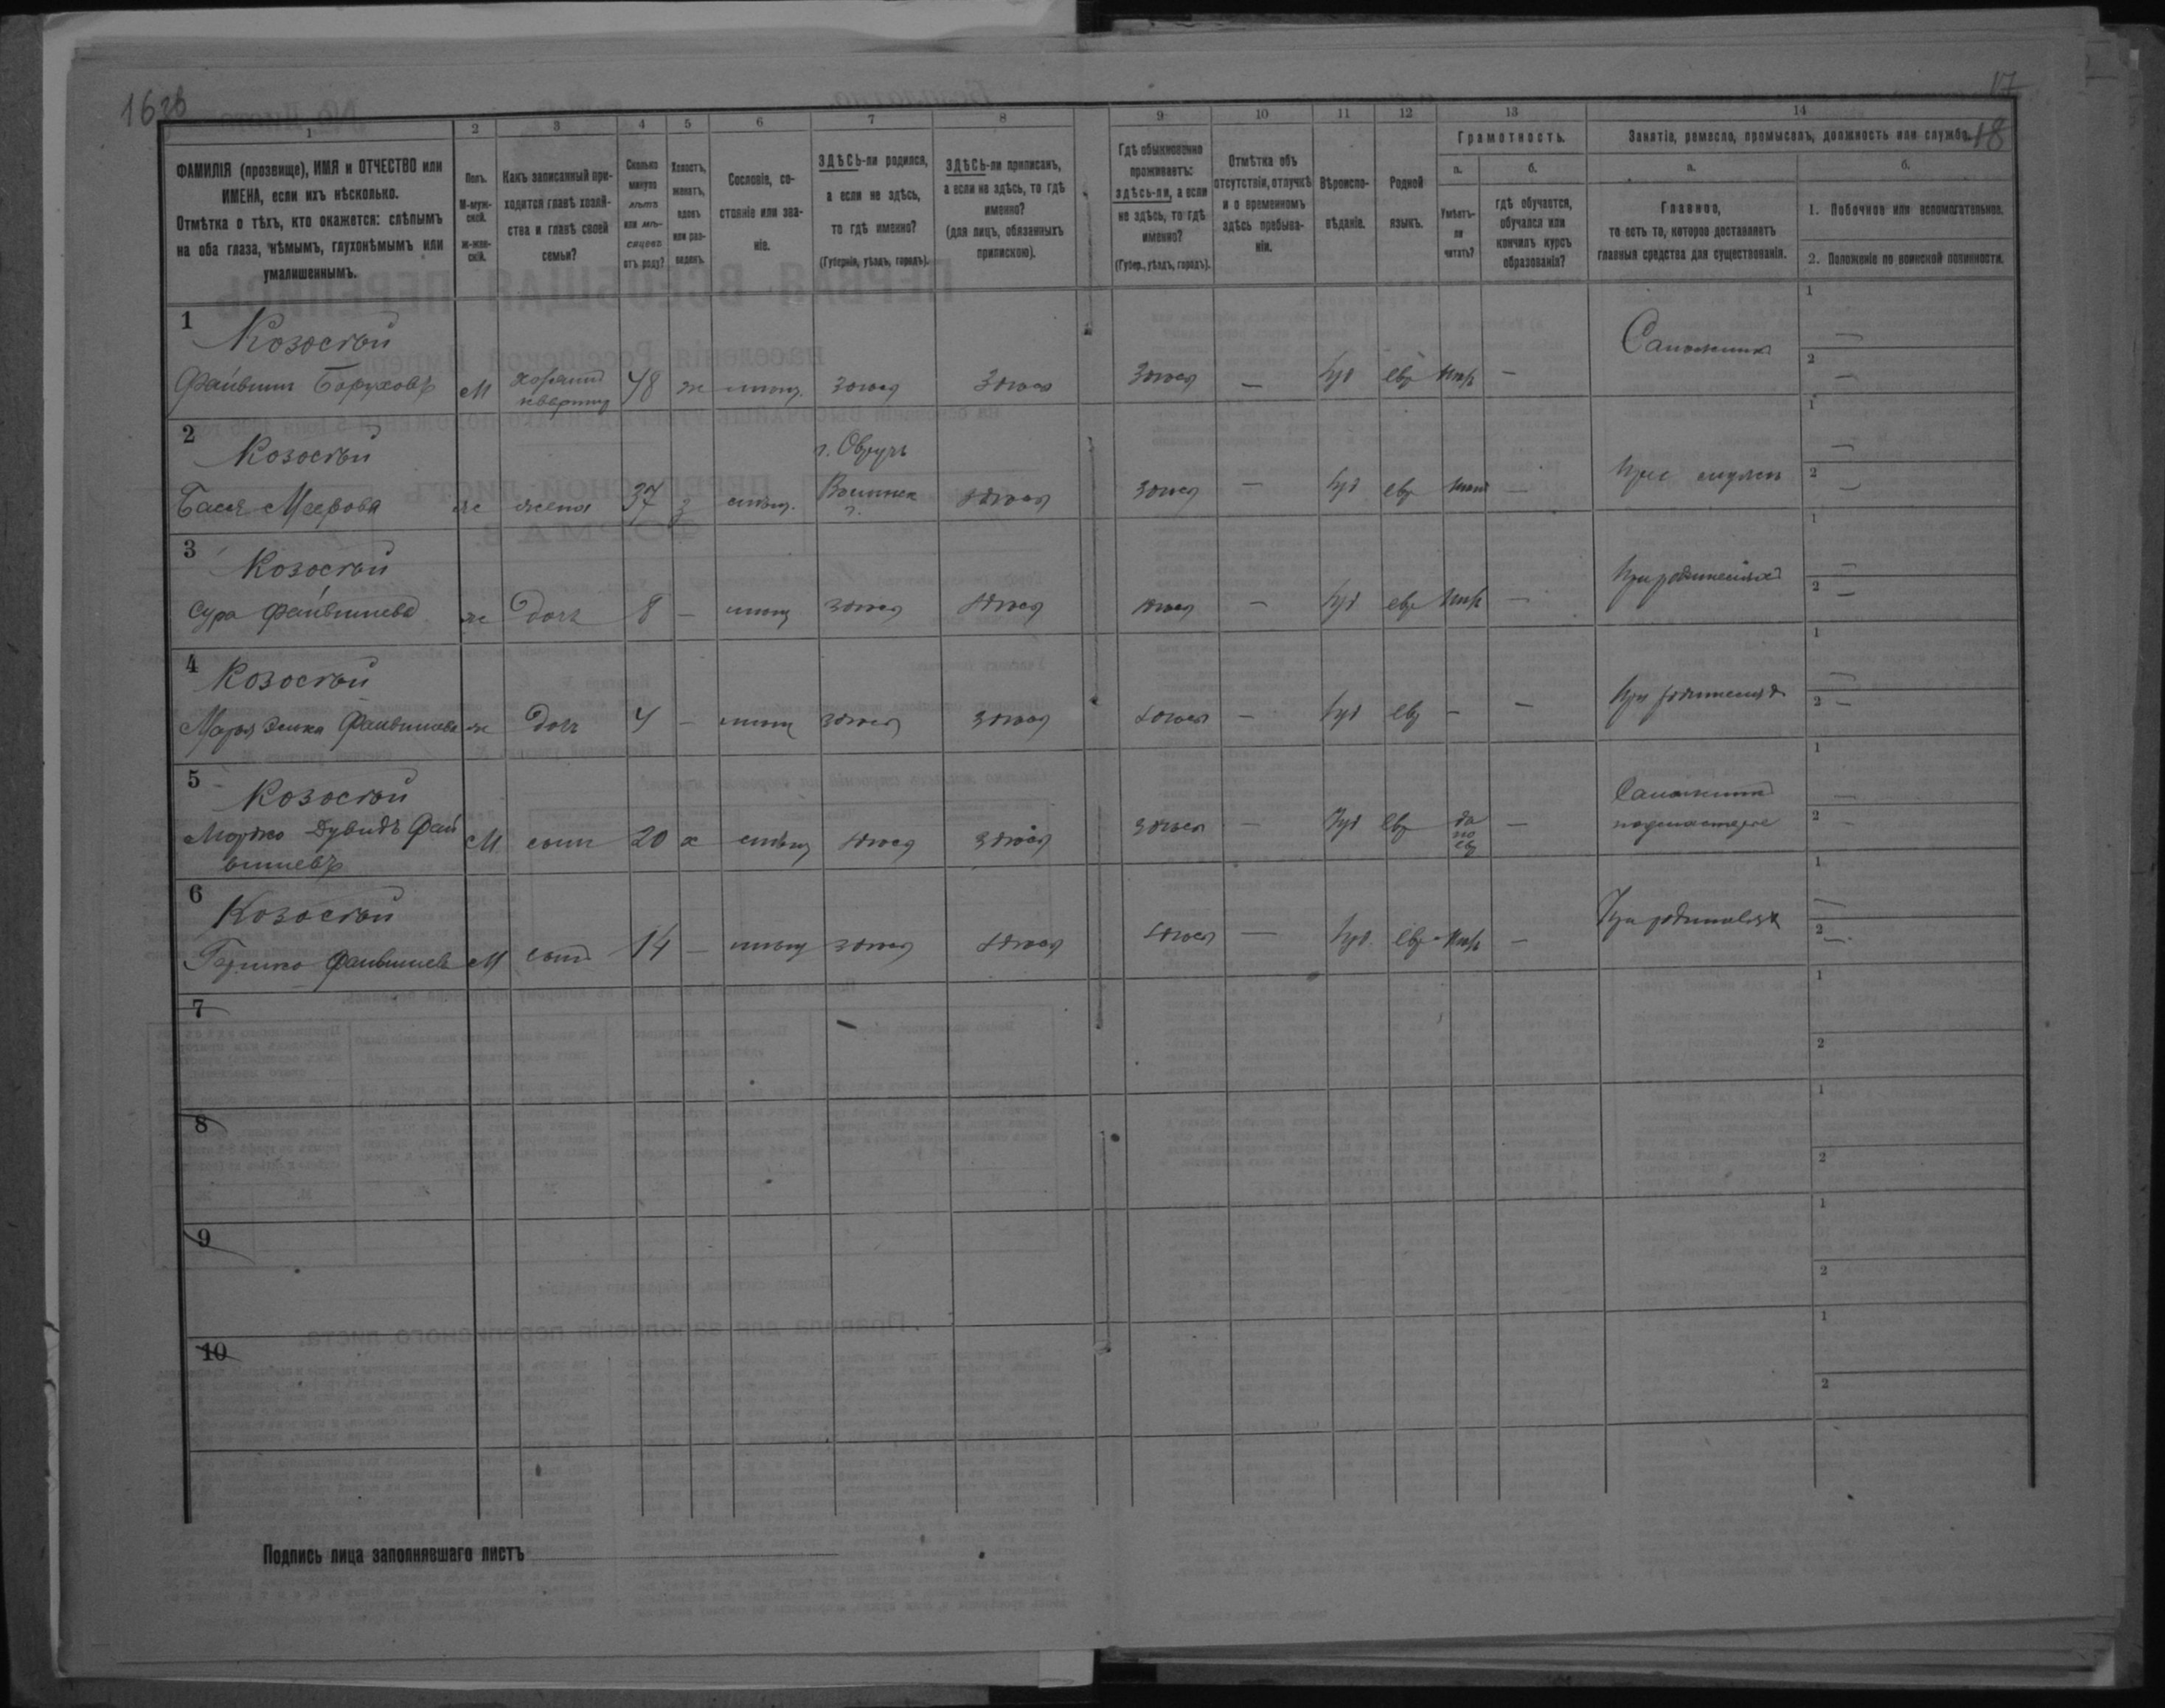 16 зв
17
18
1 2 3 4 5 6 7 8 9 10 11 12 13 14
ФАМИЛІЯ (прозвище), ИМЯ и ОТЧЕСТВО или ИМЕНА, если ихъ нѣсколько.
Отмѣтка о тѣхъ, кто окажется: слѣпымъ на оба глаза, нѣмымъ, глухонѣмымъ или умалишеннымъ.
Полъ. М-муж-ской. ж-жен-скій.
Какъ записанный при-ходится главѣ хозяй-ства и главѣ своей семьи?
Сколько минуло лѣтъ или мѣ-сяцевъ отъ роду?
Холостъ, женатъ, вдовъ или раз-веденъ.
Сословіе, со-стояніе или зва-ніе.
ЗДѢСЬ-ли родился, а если не здѣсь, то гдѣ именно?
(Губернія, уѣздъ, городъ).
ЗДѢСЬ-ли приписанъ, а если не здѣсь, то гдѣ именно?
(для лицъ, обязанныхъ припискою).
Гдѣ обыкновенно проживаетъ: здѣсь-ли, а если не здѣсь, то гдѣ именно?
(Губер., уѣздъ, городъ).
Отмѣтка объ отсутствіи, отлучкѣ и о временномъ здѣсь пребыва-ніи.
Вѣроиспо-вѣданіе.
Родной языкъ.
Грамотность.
а. Умѣетъ-ли читать?
б. гдѣ обучается, обучался или кончилъ курсъ образованія?
Занятіе, ремесло, промыселъ, должность или служба.
а. Главное, то есть то, которое доставляетъ главныя средства для существованія.
б.
1. Побочное или вспомогательное.
2. Положеніе по воинской повинности.
1 Козостой
Файвиш Боруховъ М хозяинъ квартир 48 ж мѣщ. здѣся здѣся здѣся — іуд евр нѣтъ — Сапожник 1 — 2 —
2 Козостой
Бася Меерова же жена 37 з мѣщ. г. Овруч Волынск г. здѣся здѣся — іуд евр — при муже 1 — 2 —
3 Козостой
Сура Файвишева же дочь 8 — мѣщ здѣся здѣся здѣся — іуд евр нѣтъ — при родителях 1 — 2 —
4 Козостой
Файвишева же дочь 4 — мѣщ здѣся здѣся здѣся — іуд евр — — при родителях 1 — 2 —
5 Козостой
Мортко Дувидъ Фай
вишевъ М сын 20 х мѣщ здѣся здѣся здѣся — іуд евр да по ев — Сапожник подмастерье 1 — 2 —
6 Козостой
Файвишев М сынъ 14 — мѣщ здѣся здѣся здѣся — іуд. евр нѣтъ — при родителях 1 — 2 —
7 1 2
8 1 2
9 1 2
10 1 2
Подпись лица заполнявшаго листъ